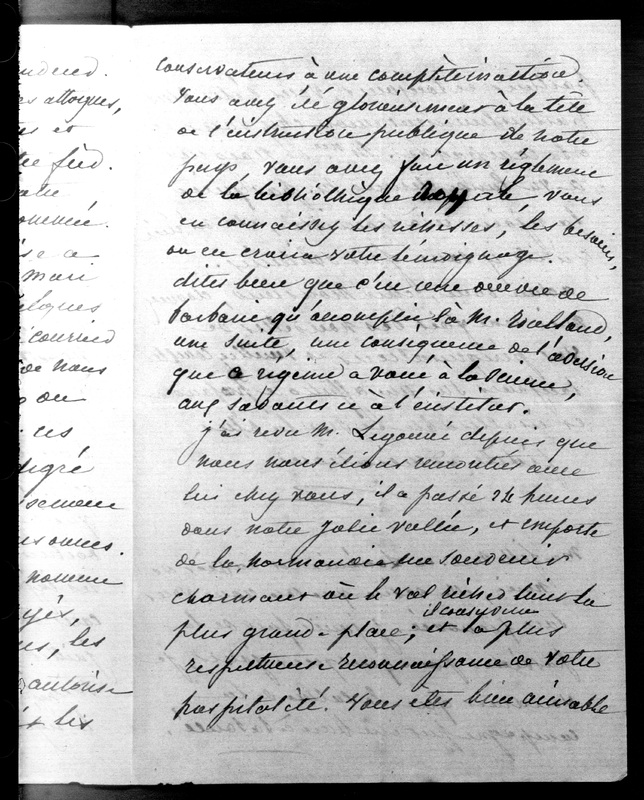 ndred.
es attaques,
us et
fied.
nommé.
mari
elques
courrier
de nous
ou
ces
digré
semaine
nomme
yés,
us, les
autorise
et les
conservateurs à une complète inattion.
Vous avez été glorieusement à la tête
de l'instruction publique de notre
pays, vous avez fait un règlement
de la bibliothèque royale, vous
en connaissez les richesses, les besoins,
on en croira votre témoignage.
dites bien que c'est une oeuvre de
barbarie qu'accomplit là M. Rouland,
une suite, une conséquence de l'aversion
que ce régime a voué à la science,
aux savants et à l'institut.
j'ai revu M. Legouvé depuis que
nous nous étions rencontrés avec
lui chez vous, il a passé 24 heures
dans notre jolie vallée, et emporte
de la normandie un souvenir
charmant où le Val richer tient la
plus grande place; et la plus
il conserve
respectueuse reconnaissance de votre
hospitalité. Vous êtes bien aimable